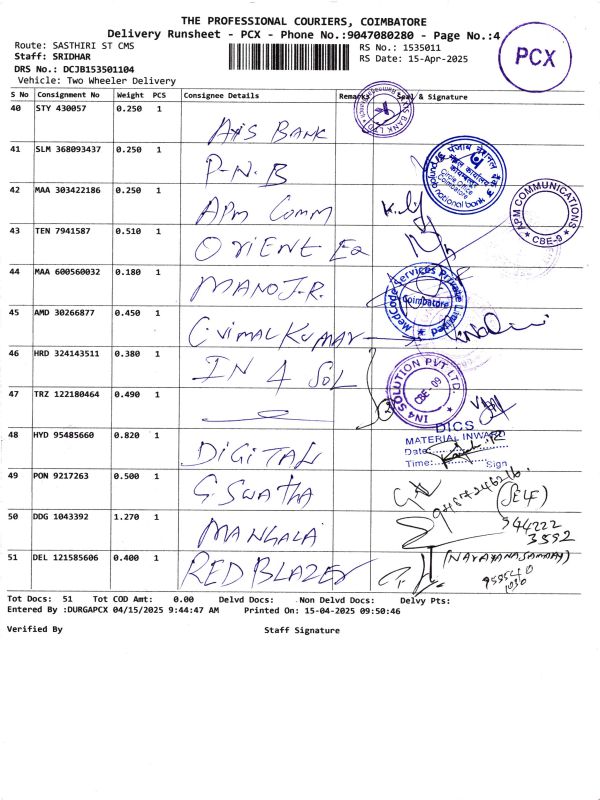 THE PROFESSIONAL COURIERS, COIMBATORE
Delivery Runsheet - PCX - Phone No.:9047080280 - Page No.:4
Route: SASTHIRI ST CMS
RS No.: 1535011
Staff: SRIDHAR
RS Date: 15-Apr-2025
DRS No.: DCJB153501104
Vehicle: Two Wheeler Delivery
PCX
S No Consignment No Weight PCS Consignee Details Remarks Seal & Signature
40 STY 430057 0.250 1
AXIS BANK
41 SLM 368093437 0.250 1
P.N.B
42 MAA 303422186 0.250 1
APM Comm
APM COMMUNICATIONS
★ CBE-9 ★
43 TEN 7941587 0.510 1
ORIENT EQ
44 MAA 600560032 0.180 1
MANOJ.R.
MedCode Services Private Limited
Coimbatore
45 AMD 30266877 0.450 1
C.VIMAL KUMAR
46 HRD 324143511 0.380 1
IN 4 SOL
IN4 SOLUTION PVT LTD.
CBE - 09
47 TRZ 122180464 0.490 1
48 HYD 95485660 0.820 1
DIGITAL
DICS
MATERIAL INWARD
Date:
Time: Sign
49 PON 9217263 0.500 1
G SWATHA
50 DDG 1043392 1.270 1
MANGALA
(SELF)
944222
3592
51 DEL 121585606 0.400 1
RED BLAZER
(NARAYANASAMAY)
Tot Docs: 51 Tot COD Amt: 0.00 Delvd Docs: Non Delvd Docs: Delvy Pts:
Entered By :DURGAPCX 04/15/2025 9:44:47 AM Printed On: 15-04-2025 09:50:46
Verified By Staff Signature